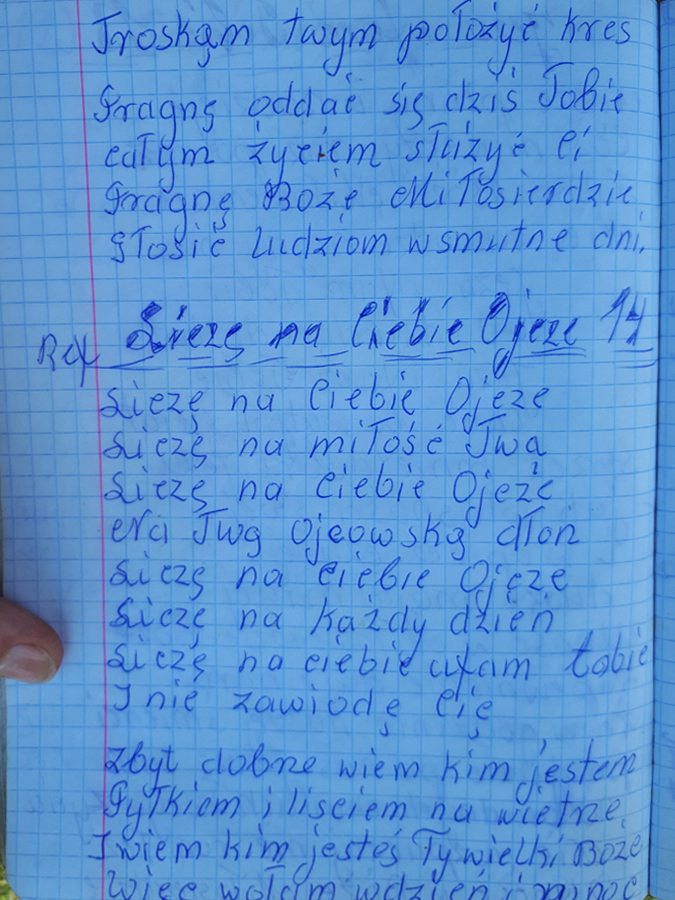 Troskąm twym położyć kres
Pragnę oddać się dziś Tobie
całym życiem służyć Ci
Pragnę Boże Miłosierdzie
głosić ludziom w smutne dni.
Ref Liczę na Ciebie Ojcze 14
Liczę na Ciebie Ojcze
Liczę na miłość Twą
Liczę na Ciebie Ojcze
Na Twą Ojcowską dłoń
Liczę na ciebie Ojcze
Liczę na każdy dzień
Liczę na ciebie ufam tobie
I nie zawiodę Cię
Zbyt dobrze wiem kim jestem
Pyłkiem i liściem na wietrze
I wiem kim jesteś Ty wielki Boże
Więc wołam w dzień i w noc